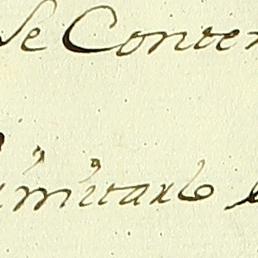 se Conten
imitarlo